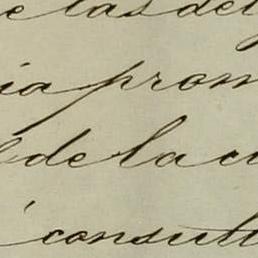 e las del
ia prom
de la cu
consult